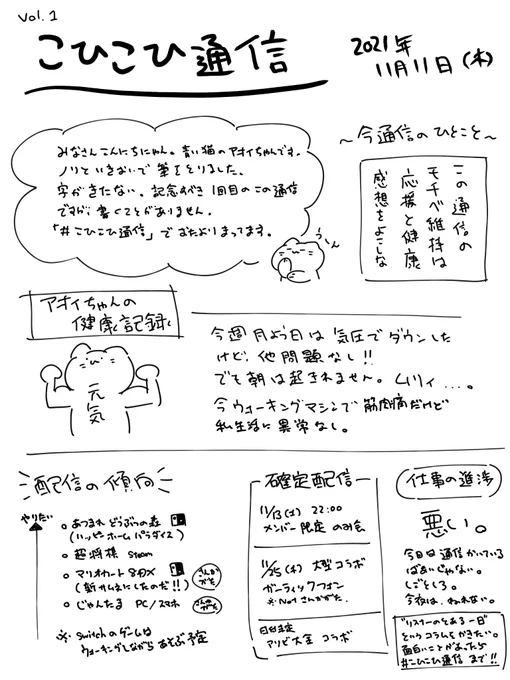 Vol. 1
こひこひ通信
2021年
11月11日(木)
みなさんこんにちにゃん。青い猫のアオイちゃんです。
ノリといきおいで筆をとりました。
字がきたない。記念すべき1回目のこの通信
ですが、書くことがありません。
「#こひこひ通信」でおたよりまってます。
うーん
〜今通信のひとこと〜
この通信の
モチベ維持は
応援と健康
感想をよこしな
アオイちゃんの
健康記録
元気
今週月よう日は気圧でダウンした
けど、他問題なし!!
でも朝は起きれません。ムリィ…。
今ウォーキングマシンで筋肉痛だけど
私生活に異常なし。
配信の傾向
やりたい
○あつまれどうぶつの森
(ハッピーホームパラダイス)
○超将棋 Steam
○マリオカート8DX
(新サムネにしたのだ!!)
○じゃんたま PC/スマホ
※Switchのゲームは
ウォーキングしながらあそぶ予定
確定配信
11/13(土) 22:00
メンバー限定 のみ会
11/25(木) 大型コラボ
ガーティックフォン
※Notさんがガた。
日付未定
アソビ大全 コラボ
仕事の進渉
悪い。
今日は通信かいている
ばあいじゃない。
しごとしろ。
今夜は、ねれない。
"リスナーのとある一日"
というコラムをかきたい。
面白いことがあったら
#こひこひ通信 まで!!